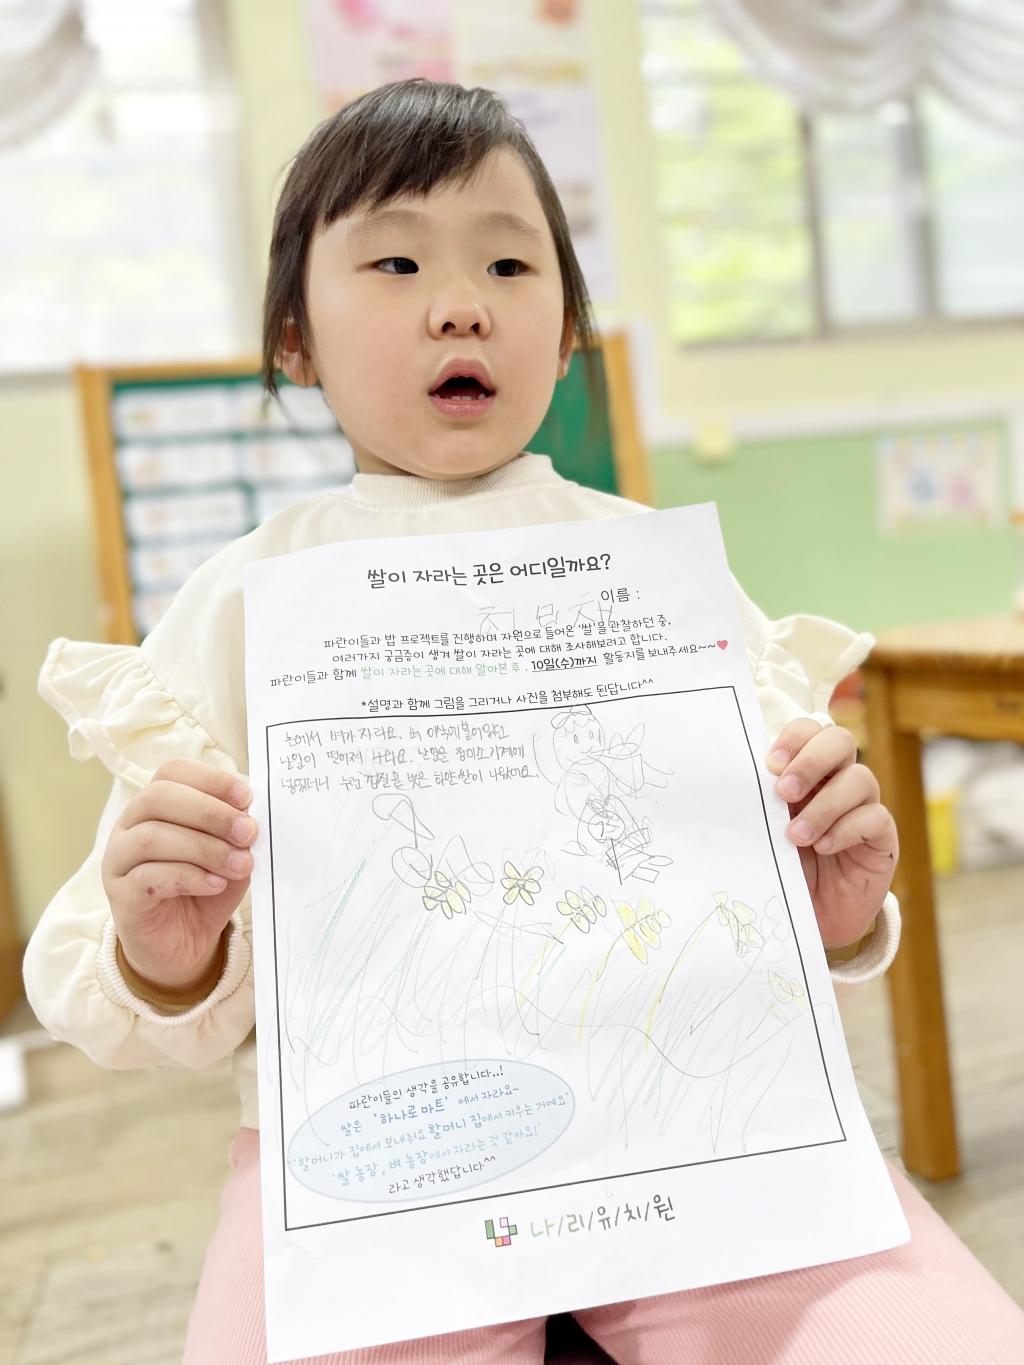 쌀이 자라는 곳은 어디일까요?
이름 :
파란이들과 밥 프로젝트를 진행하며 자원으로 들어온 '쌀'을 관찰하던 중,
여러가지 궁금증이 생겨 쌀이 자라는 곳에 대해 조사해보려고 합니다.
파란이들과 함께 쌀이 자라는 곳에 대해 알아본 후, 10일(수)까지 활동지를 보내주세요~~♥
*설명과 함께 그림을 그리거나 사진을 첨부해도 된답니다^^
논에서 벼가 자라요. 벼 이삭에 붙어있던
낟알이 떨어져 나와요. 낟알은 정미소 기계에
넣었더니 누런 껍질을 벗은 하얀 쌀이 나왔어요.
파란이들의 생각을 공유합니다..!
쌀은 '하나로 마트' 에서 자라요~
'할머니가 집에서 보내줘요 할머니 집에서 키우는 거예요'
'쌀 농장, 벼 농장에서 자라는 것 같아요!'
라고 생각했답니다^^
나/리/유/치/원